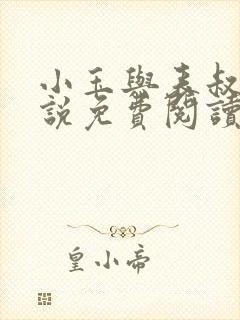 小玉與表叔
說免費閱讀
皇小帝